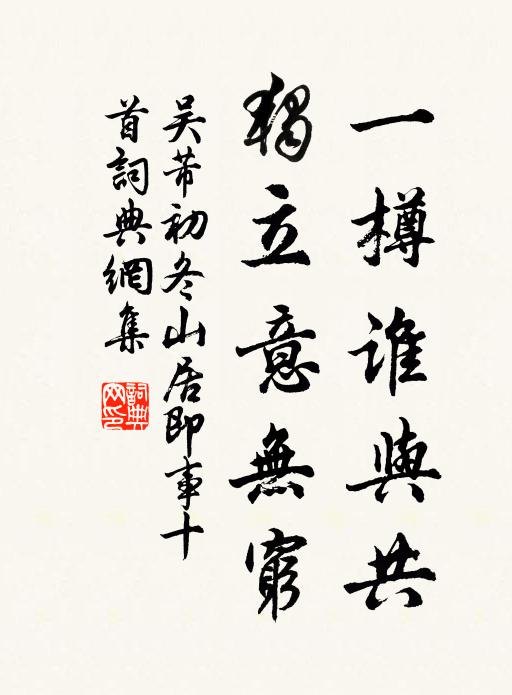 一樽谁與共
獨立意無窮
吴芾初冬山居即事十
首詞典網集
詞典
网印